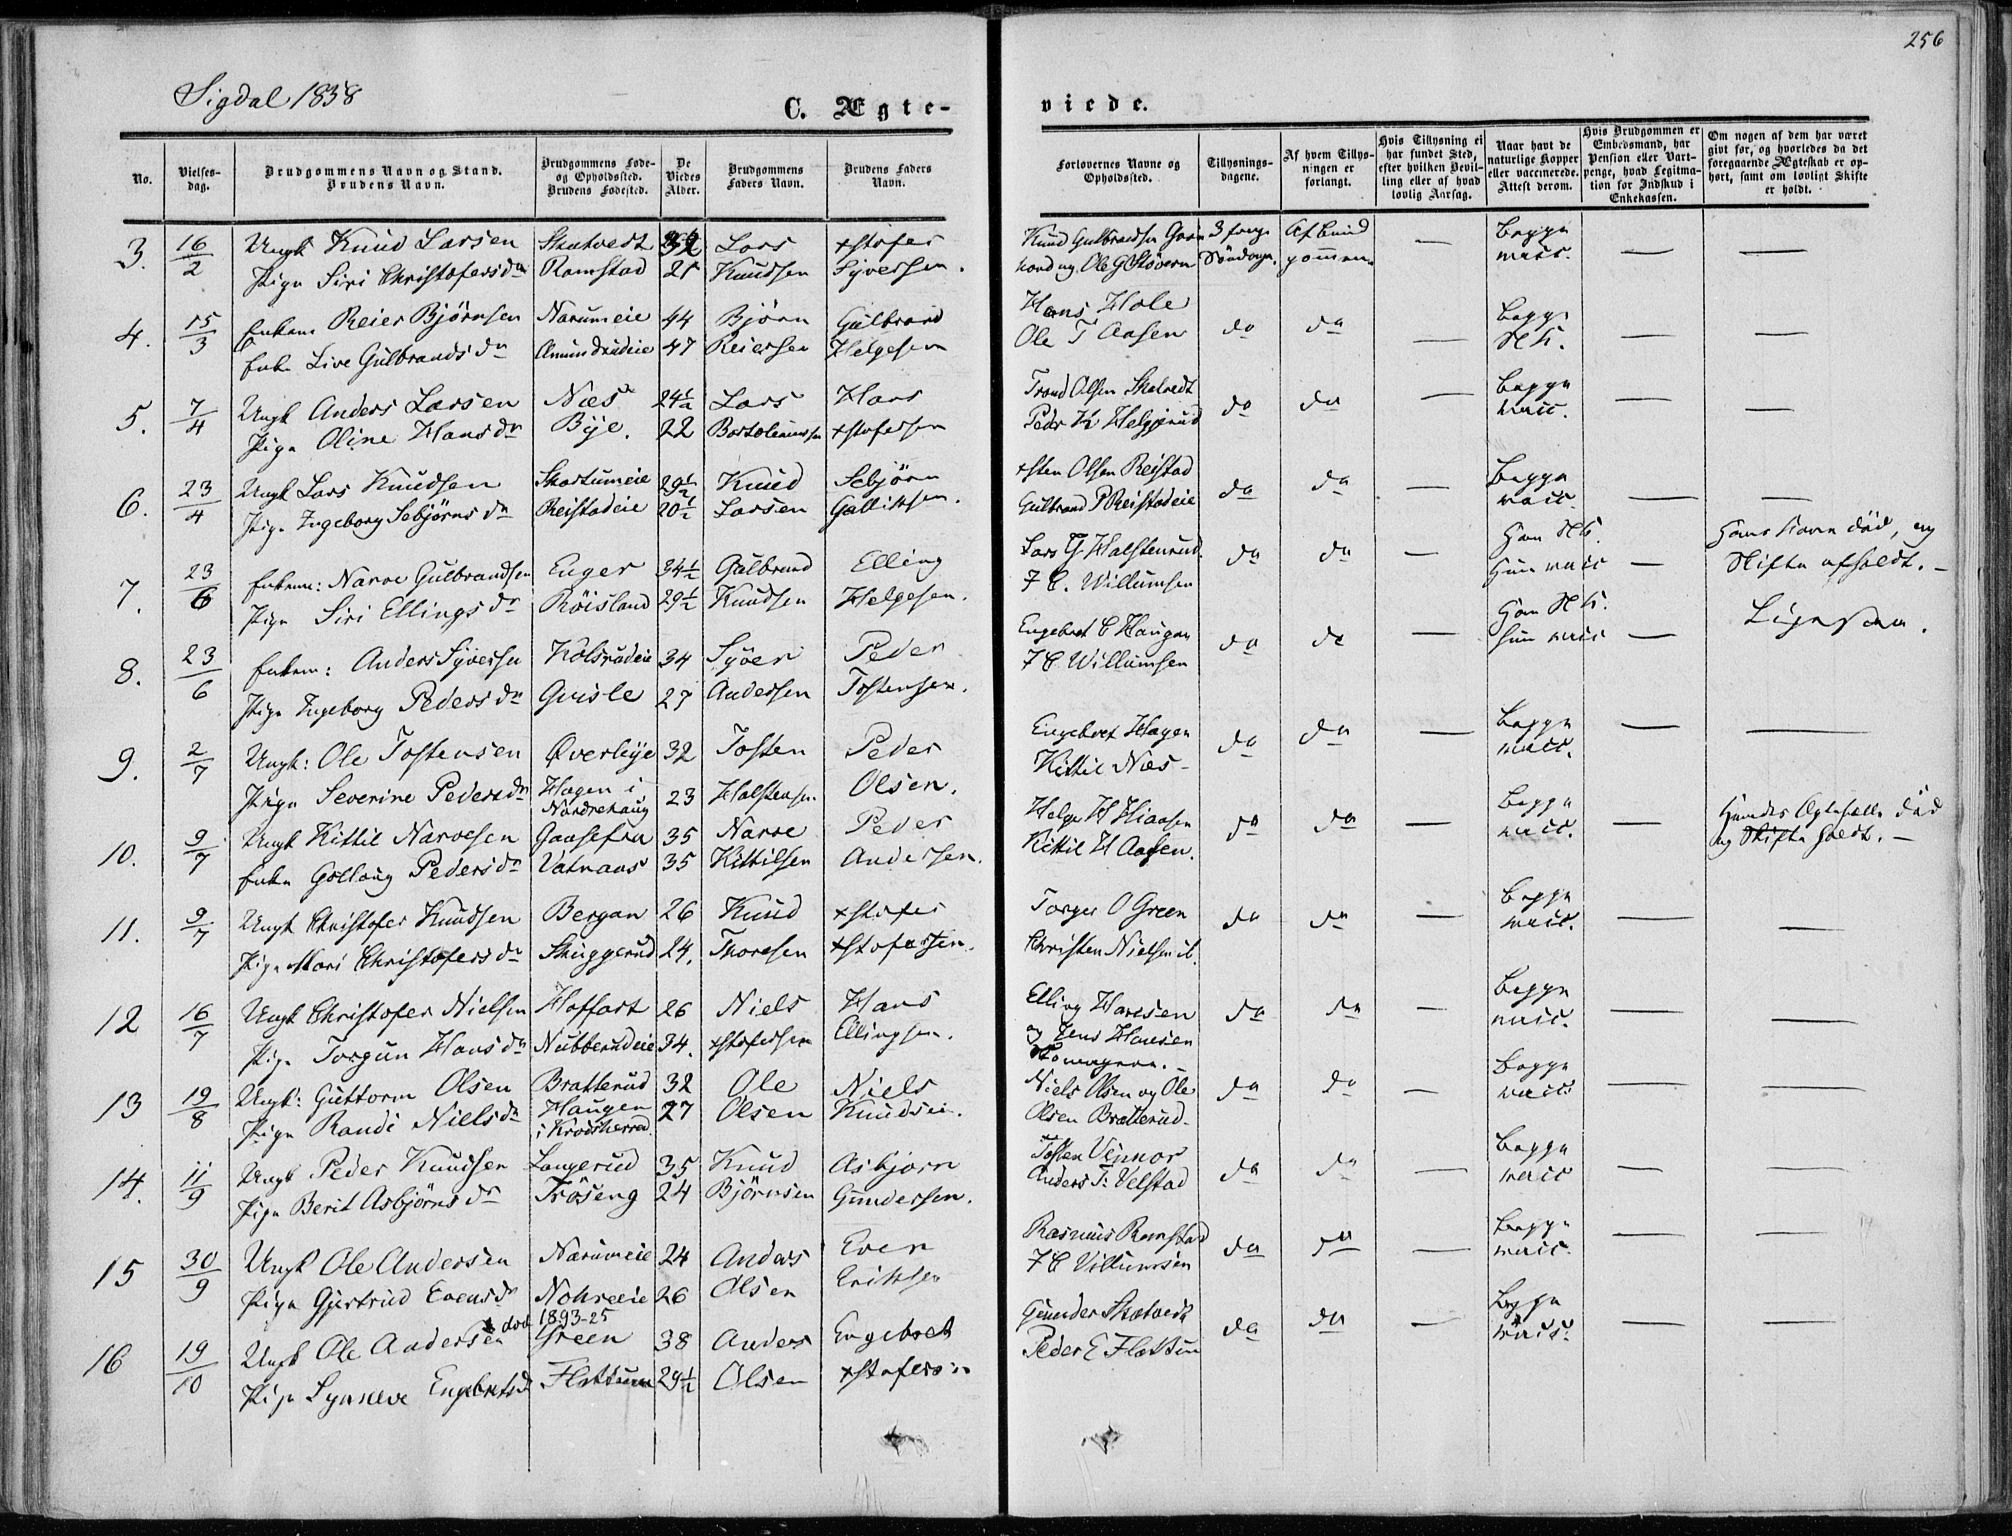 256
Sigdal 1858
C. Ægte-
viede.
No.
Vielses-
dag.
Brudgommens Navn og Stand.
Brudens Navn.
Brudgommens Føde-
og Opholdssted.
Brudens Fødested.
De
Viedes
Alder.
Brudgommens
Faders Navn.
Brudens Faders
Navn.
Forlovernes Navne og
Opholdssted.
Tillysnings-
dagene.
Af hvem Tillys-
ningen er
forlangt.
Hvis Tillysning ei
har fundet Sted,
efter hvilken Bevil-
ling eller af hvad
lovlig Aarsag.
Naar havt de
naturlige Kopper
eller vaccinerede.
Attest derom.
Hvis Brudgommen er
Embedsmand, har
Pension eller Vart-
penge, hvad Legitima-
tion for Indskud i
Enkekassen.
Om nogen af dem har været
givt før, og hvorledes da det
foregaaende Ægteskab er op-
hørt, samt om lovligt Skifte
er holdt.
3. 16/2 Ungk Knud Larsen Skatvedt 32 Lars xstofer
Pige Siri Christofersdr Ramstad 21 Knudsen Syversen.
Knud Gulbrandsen 3 forege Af Brud Begge
og Ole G Støvern Søndage. gommen — vacc. — —
4. 15/3 Enkem Reier Bjørnsen Narumeie 44 Bjørn Gulbrand
Enke Live Gulbrandsdr Amundrudeie 47 Reiersen Helgesen
Hans Hole Begge
Ole T Aasen do do — N K. — —
5. 7/4 Ungk Anders Larsen Næs 24½ Lars Hans
Pige Oline Hansdr Bye. 22 Bartolinussen xstofersen
Trond Olsen Skatvedt Begge
Peder K Helgerud do do — vacc. — —
6. 23/4 Ungk Lars Knudsen Skartumeie 29½ Knud Sebjørn
Pige Ingeborg Sebjørnsdr Reistadeie 20½ Larsen Gulliksen.
xsten Olsen Reistad Begge
Gulbrand P Reistadeie do do — vacc. — —
7. 23/6 Enkem: Narve Gulbrandsen Enger 34½ Gulbrand Elling
Pige Siri Ellingsdr Røisland 29½ Knudsen Helgesen.
Lars G Halstenrud Han N K. Hans Kone død, og
F C. Willumsen do do — Hun vacc — Skifte afholdt. —
8. 23/6 Enkem: Anders Syversen Kolsrudeie 34 Syver Peder
Pige Ingeborg Pedersdr Gvisle 27 Andersen Tostensen.
Engebret C Haugan Han N K.
F C. Willumsen do do — Hun vacc — Ligesaa.
9. 2/7 Ungk: Ole Tostensen Øverbye 32 Tosten Peder
Pige Severine Pedersdr Hagen i 23 Halstensen Olsen.
Nordrehaug
Engebret Hagen Begge
Kittil Næs- do do — vacc. — —
10. 9/7 Ungk Kittil Narvesen Gaasefra 35 Narve Peder
Enke Gollaug Pedersdr Vatnaas 35 Kittilsen Andersen.
Helge H Hiaasen Begge Hendes Ægtefælle død
Kittil H Aasen. do do — vacc. — og Skifte holdt. —
11. 9/7 Ungk Christofer Knudsen Bergan 26 Knud xstofer
Pige Mari Christofersdr Skuggerud 24. Thoresen xstofersen.
Torger O Green Begge
Christen Nielsen do do — vacc. — —
12 16/7 Ungk Christofer Nielsen Hoffart 26 Niels Hans
Pige Torgun Hansdr Nubberudeie 34. xstofersen Ellingsen.
Elling Hansen Begge
og Jens Hansen do do — vacc. — —
13 19/8 Ungk: Guttorm Olsen Bratterud 32 Ole Niels
Pige Randi Nielsdr Haugen 27 Olsen Knudsen.
i Krødsherred.
Niels Olsen og Ole Begge
Olsen Bratterud. do do — vacc — —
14. 11/9 Ungk Peder Knudsen Langerud 35 Knud Asbjørn
Pige Berit Asbjørnsdr Trøseng 24 Bjørnsen Gundersen.
Tosten Vennor Begge
Anders T: Velstad do do — vacc — —
15 30/9 Ungk Ole Andersen Narumeie 24 Anders Even
Pige Gjertrud Evensdr Nohreeie 26 Olsen Eriksen
Rasmus Ramstad Begge
F C Villumsen do do — vacc. — —
død 1893-25
16 19/10 Ungk Ole Andersen Green 38 Anders Engebret
Pige Synneve Engebretsd Flattum 29½ Olsen xstofersen
Gunder Skatvedt Begge
Peder E Flattum do do — vacc. — —